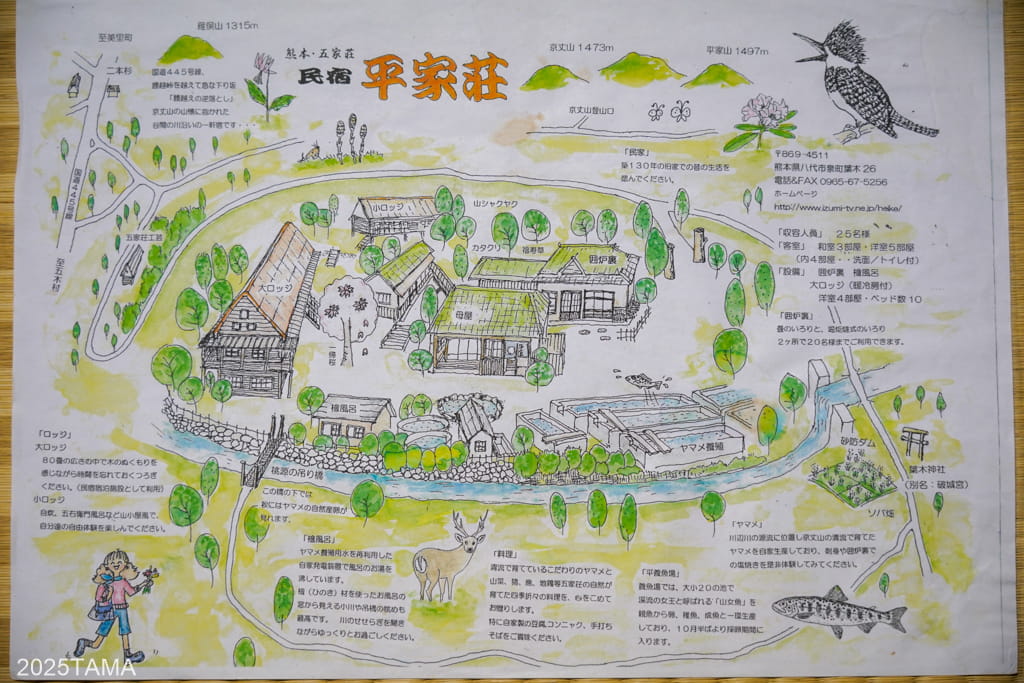 至美里町
雁俣山 1315m
二本杉
国道445号線、
腰越峠を越えて急な下り坂
「腰越えの逆落とし」
京丈山の山懐に抱かれた
谷間の川沿いの一軒宿です・・・
熊本・五家荘
民宿 平家荘
京丈山 1473m
平家山 1497m
京丈山登山口
「民家」
築130年の旧家での昔の生活を
偲んでください。
〒869-4511
熊本県八代市泉町葉木26
電話&FAX 0965-67-5256
ホームページ
http://www.izumi-tv.ne.jp/heike/
「収容人員」 25名様
「客室」 和室3部屋・洋室5部屋
(内4部屋・洗面/トイレ付)
「設備」 囲炉裏 檜風呂
大ロッジ(暖冷房付)
洋室4部屋・ベッド数10
「囲炉裏」
畳のいろりと、堀炬燵式のいろり
2ヶ所で20名様までご利用できます。
国道445号線
五家荘工芸
至五木村
小ロッジ
山シャクヤク
カタクリ
福寿草
囲炉裏
大ロッジ
母屋
檜風呂
ヤマメ養殖
桃源の吊り橋
砂防ダム
葉木神社
(別名:破城宮)
ソバ畑
「ロッジ」
大ロッジ
80畳の広さの中で木のぬくもりを
感じながら時間を忘れておくつろぎ
ください。(民宿宿泊施設として利用)
小ロッジ
自炊、五右衛門風呂など山小屋風で、
自分達の自由体験を楽しんでください。
この橋の下では
秋にはヤマメの自然産卵が
見れます。
「檜風呂」
ヤマメ養殖用水を再利用した
自家発電装置で風呂のお湯を
沸しています。
檜(ひのき)材を使ったお風呂の
窓から見える小川や吊橋の眺めも
最高です。 川のせせらぎを聞き
ながらゆっくりとお過ごしください。
「料理」
清流で育てているこだわりのヤマメと
山菜、猪、鹿、地鶏等五家荘の自然が
育てた四季折々の料理を、心をこめて
お贈りします。
特に自家製の豆腐、コンニャク、手打ち
そばをご賞味ください。
「平養魚場」
養魚場では、大小20の池で
渓流の女王と呼ばれる「山女魚」を
親魚から卵、稚魚、成魚と一環生産
しており、10月半ばより採卵期間に
入ります。
「ヤマメ」
川辺川の源流に位置し京丈山の清流で育てた
ヤマメを自家生産しており、刺身や囲炉裏で
の塩焼きを是非体験してみてください。
2025TAMA